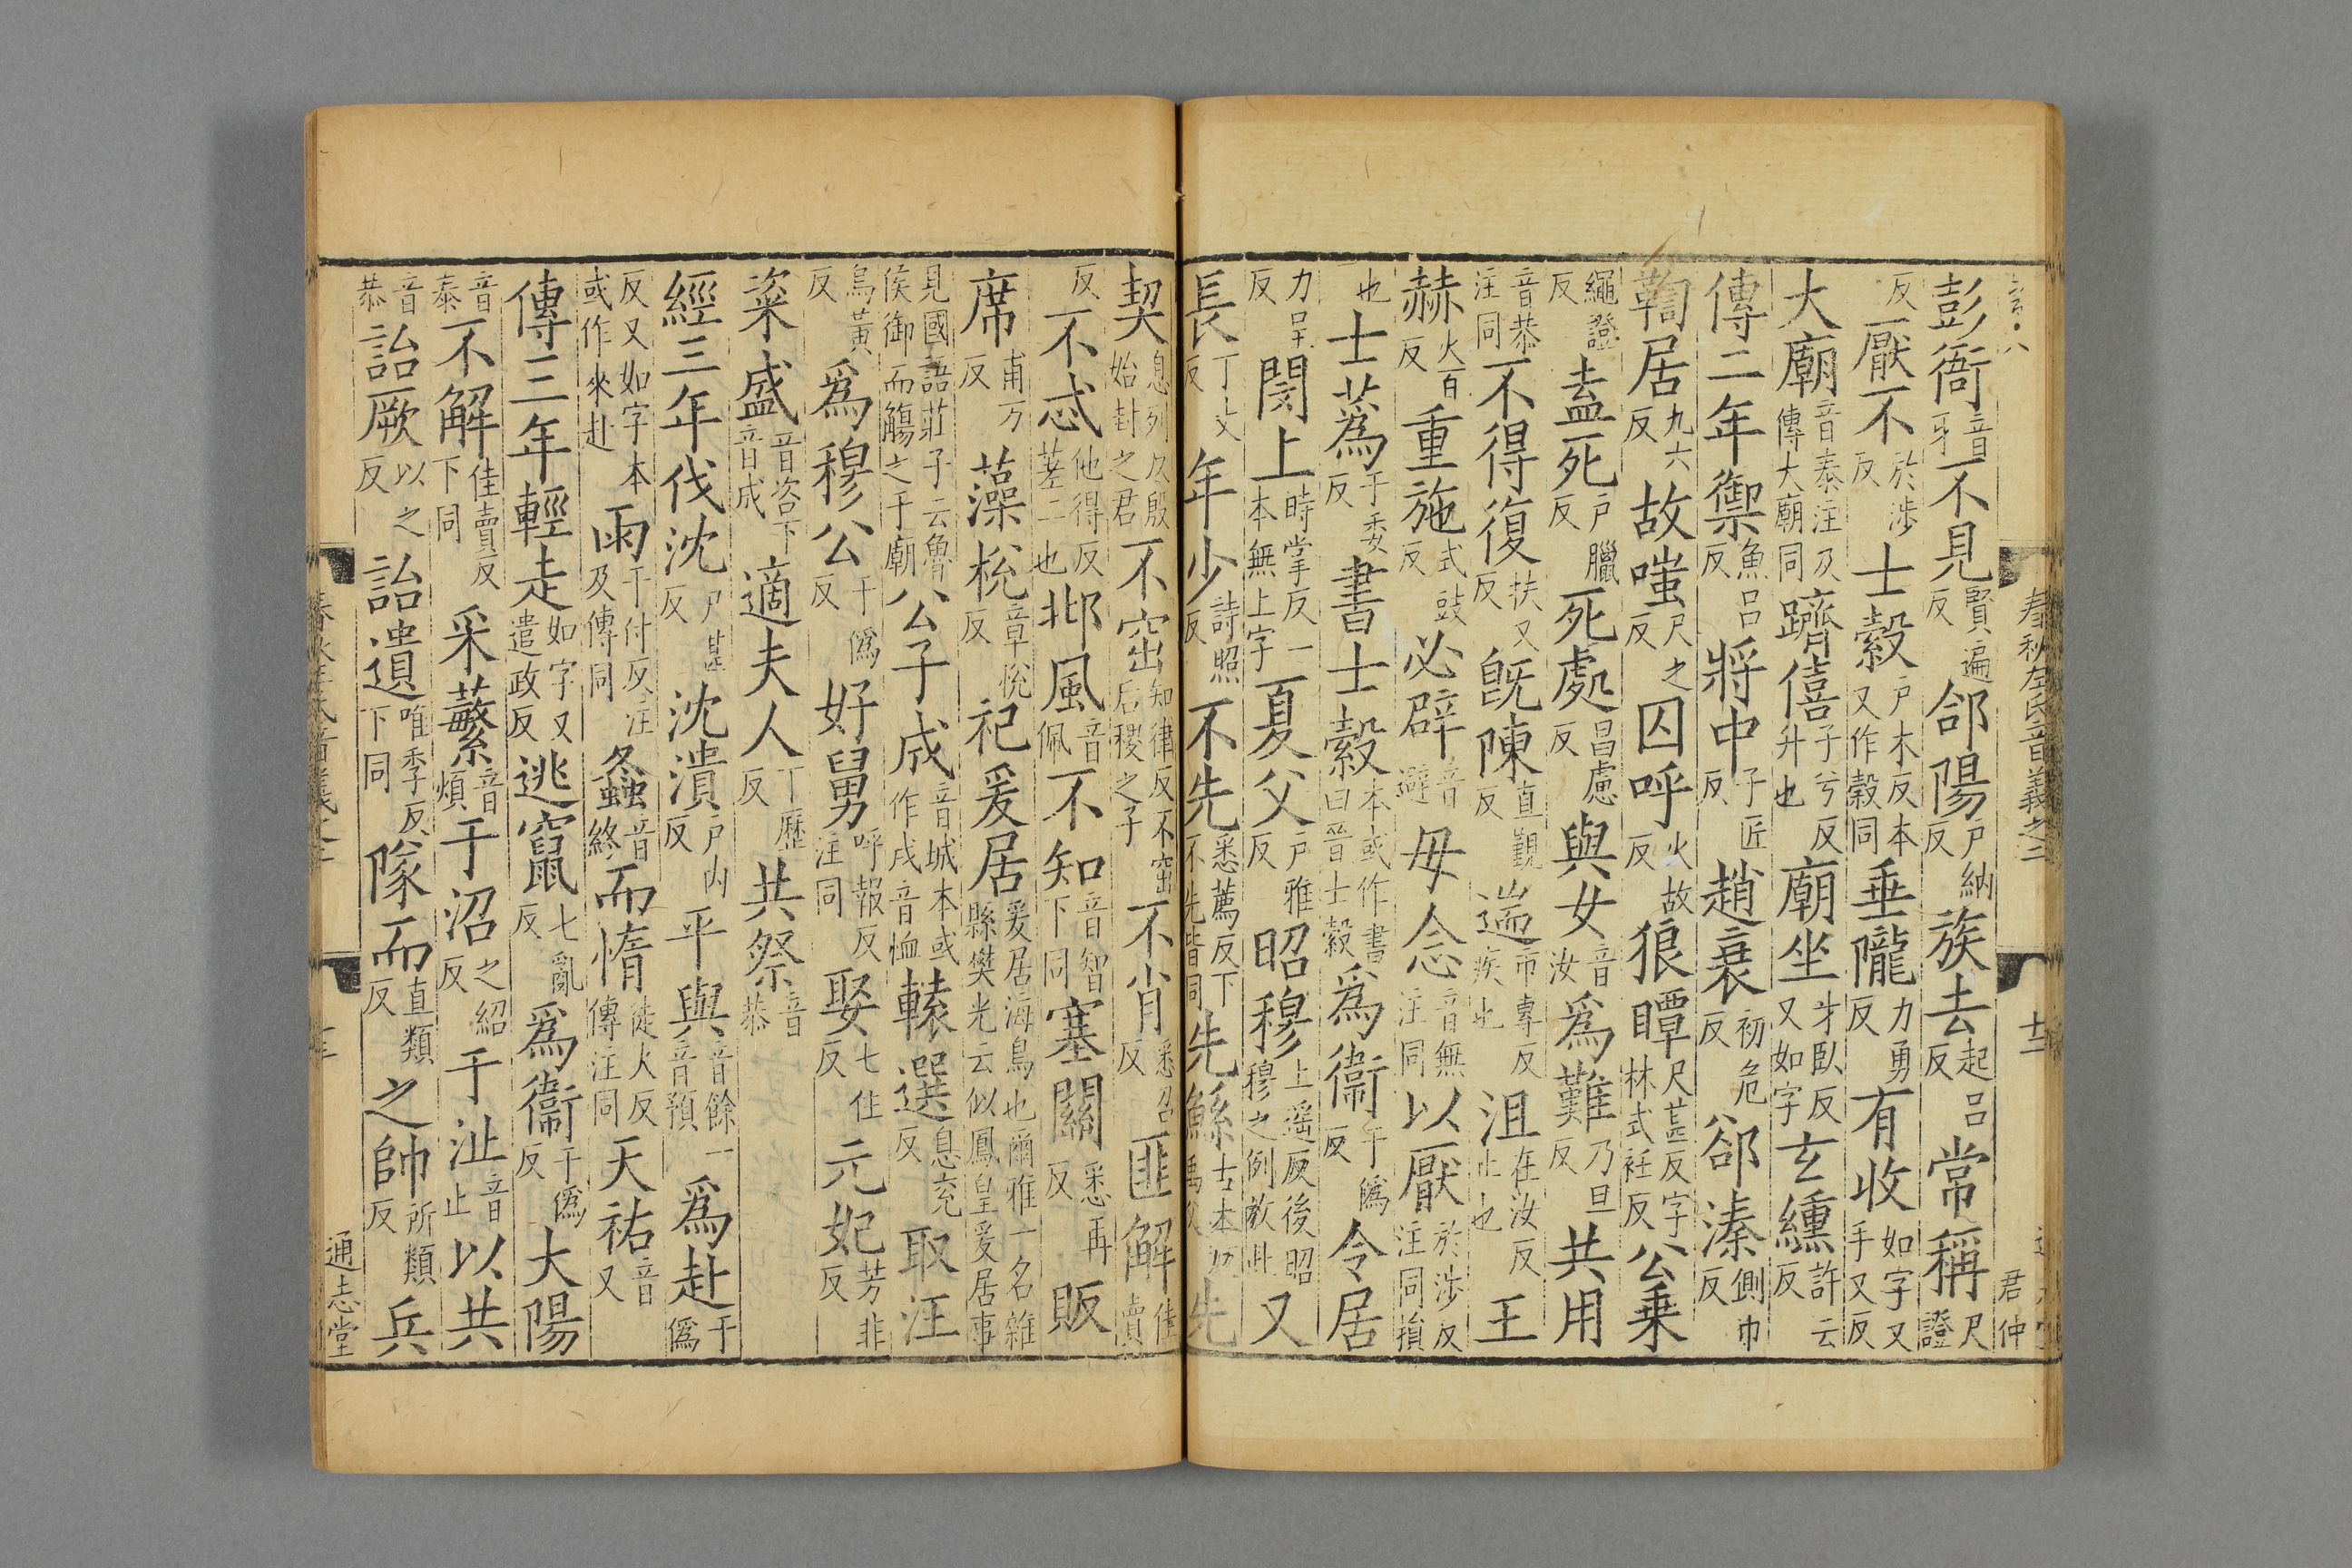 春秋左氏音義之二
十二
君仲
彭衙音牙不見賢遍反郃陽戶納反族去起呂反常稱尺證
反厭不於涉反士縠戶木反本又作榖同垂隴力勇反有收如字又手又反
大廟音泰注及傳大廟同躋僖子兮反升也廟坐才臥反又如字玄纁許云反
傳二年禦魚呂反將中子匠反趙衰初危反郤溱側巾反
鞫居九六反故嗤尺之反囚呼火故反狼瞫尺甚反字林式衽反公乗
繩證反盍死戶臘反死處昌慮反與女音汝爲難乃旦反共用
音恭注同不得復扶又反旣陳直覲反遄市專反疾也沮在汝反止也王
赫火百反重施式豉反必辟音避毋念音無注同以厭於涉反注同損
也士蒍于委反書士縠本或作書曰晉士縠爲衞于僞反令居
力呈反閔上時掌反一本無上字夏父戶雅反昭穆上遥反後昭穆之例放此又
長丁丈反年少詩照反不先悉薦反下不先皆同先鯀古本反禹父先
契息列反殷始封之君不窋知律反不窋后稷之子不肖悉召反匪解佳賣
反不忒他得反差二也邶風音佩不知音智下同塞關悉再反販
席甫万反藻梲章悅反祀爰居爰居海鳥也爾雅一名雜縣樊光云似鳳皇爰居事
見國語莊子云魯侯御而觴之于廟公子成音城本或作戌音恤轅選息兗反取汪
烏黃反爲穆公于僞反好舅呼報反注同娶七住反元妃芳非反
粢盛音咨下音成適夫人丁歷反共祭音恭
經三年伐沈尸甚反沈潰戶内反平與音餘一音預爲赴于僞
反又如字本或作來赴雨于付反注及傳同螽音終而惰徒火反傳注同天祐音又
傳三年輕走如字又遣政反逃竄七亂反爲衞于僞反大陽
音泰不解佳賣反下同采蘩音煩于沼之紹反于沚音止以共
音恭詒厥以之反詒遺唯季反下同隊而直類反之帥所類反兵
通志堂